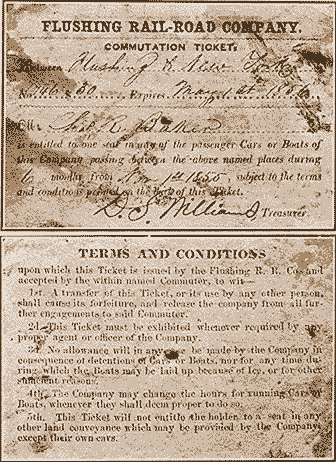 FLUSHING RAIL-ROAD COMPANY.
COMMUTATION TICKET.
Between Flushing & New York
No. 166 $30 Expires May 1st 1856
R. Baker
is entitled to one seat in any of the passenger Cars or Boats of
this Company passing between the above named places during
6 months from Nov 1st 1855, subject to the terms
and conditions printed on the Back of this Ticket.
D. S. Williams Treasurer
TERMS AND CONDITIONS
upon which this Ticket is issued by the Flushing R. R. Co. and
accepted by the within named Commuter, to wit—
1st. A transfer of this Ticket, or its use by any other person,
shall cause its forfeiture, and release the company from all fur-
ther engagements to said Commuter.
2d. This Ticket must be exhibited whenever required by any
proper agent or officer of the Company.
3d. No allowance will in any case be made by the Company in
consequence of detentions of Cars or Boats, nor for any time du-
ring which the Boats may be laid up because of Ice, or for other
sufficient reasons.
4th. The Company may change the hours for running Cars or
Boats, whenever they shall deem proper to do so.
5th. This Ticket will not entitle the holder to a seat in any
other land conveyance which may be provided by the Company
except their own cars.